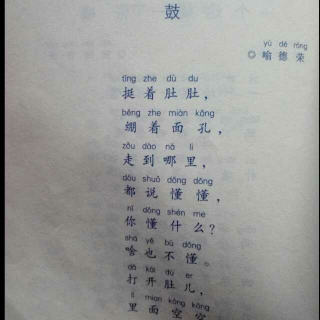 鼓
yù dé róng
◎ 喻 德 荣
tǐng zhe dù du
挺 着 肚 肚，
běng zhe miàn kǒng
绷 着 面 孔，
zǒu dào nǎ lǐ
走 到 哪 里，
dōu shuō dǒng dǒng
都 说 懂 懂，
nǐ dǒng shén me
你 懂 什 么？
shá yě bù dǒng
啥 也 不 懂。
dǎ kāi dù er
打 开 肚 儿，
lǐ miàn kōng kōng
里 面 空 空